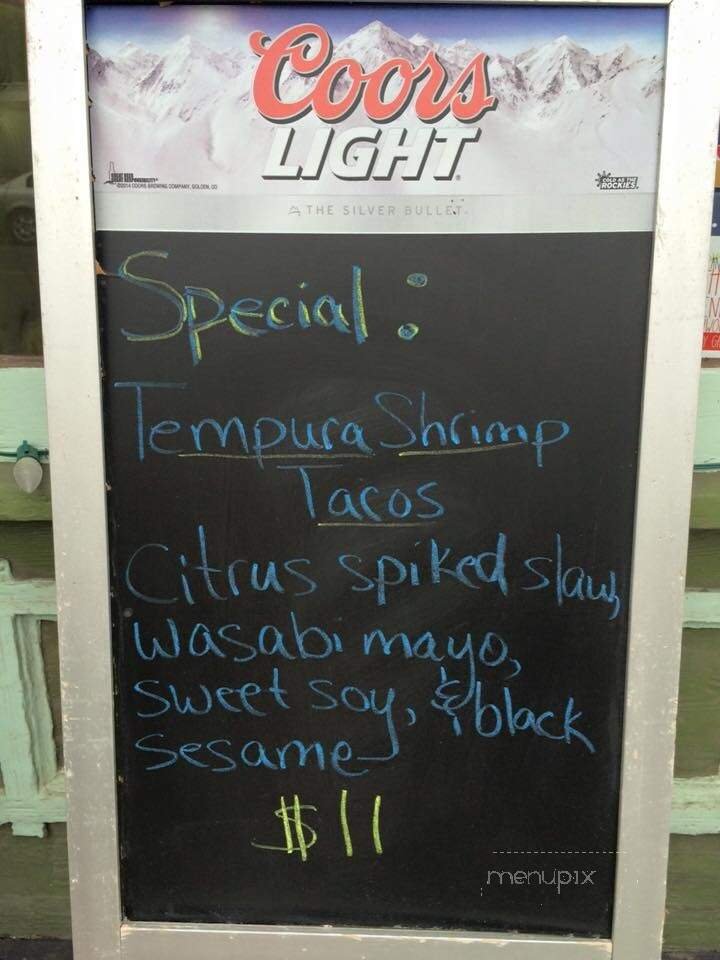 Coors
LIGHT
©2014 COORS BREWING COMPANY, GOLDEN, CO
COLD AS THE
ROCKIES
THE SILVER BULLET
Special:
Tempura Shrimp
Tacos
Citrus spiked slaw,
wasabi mayo,
sweet soy, & black
sesame
$11
menupix